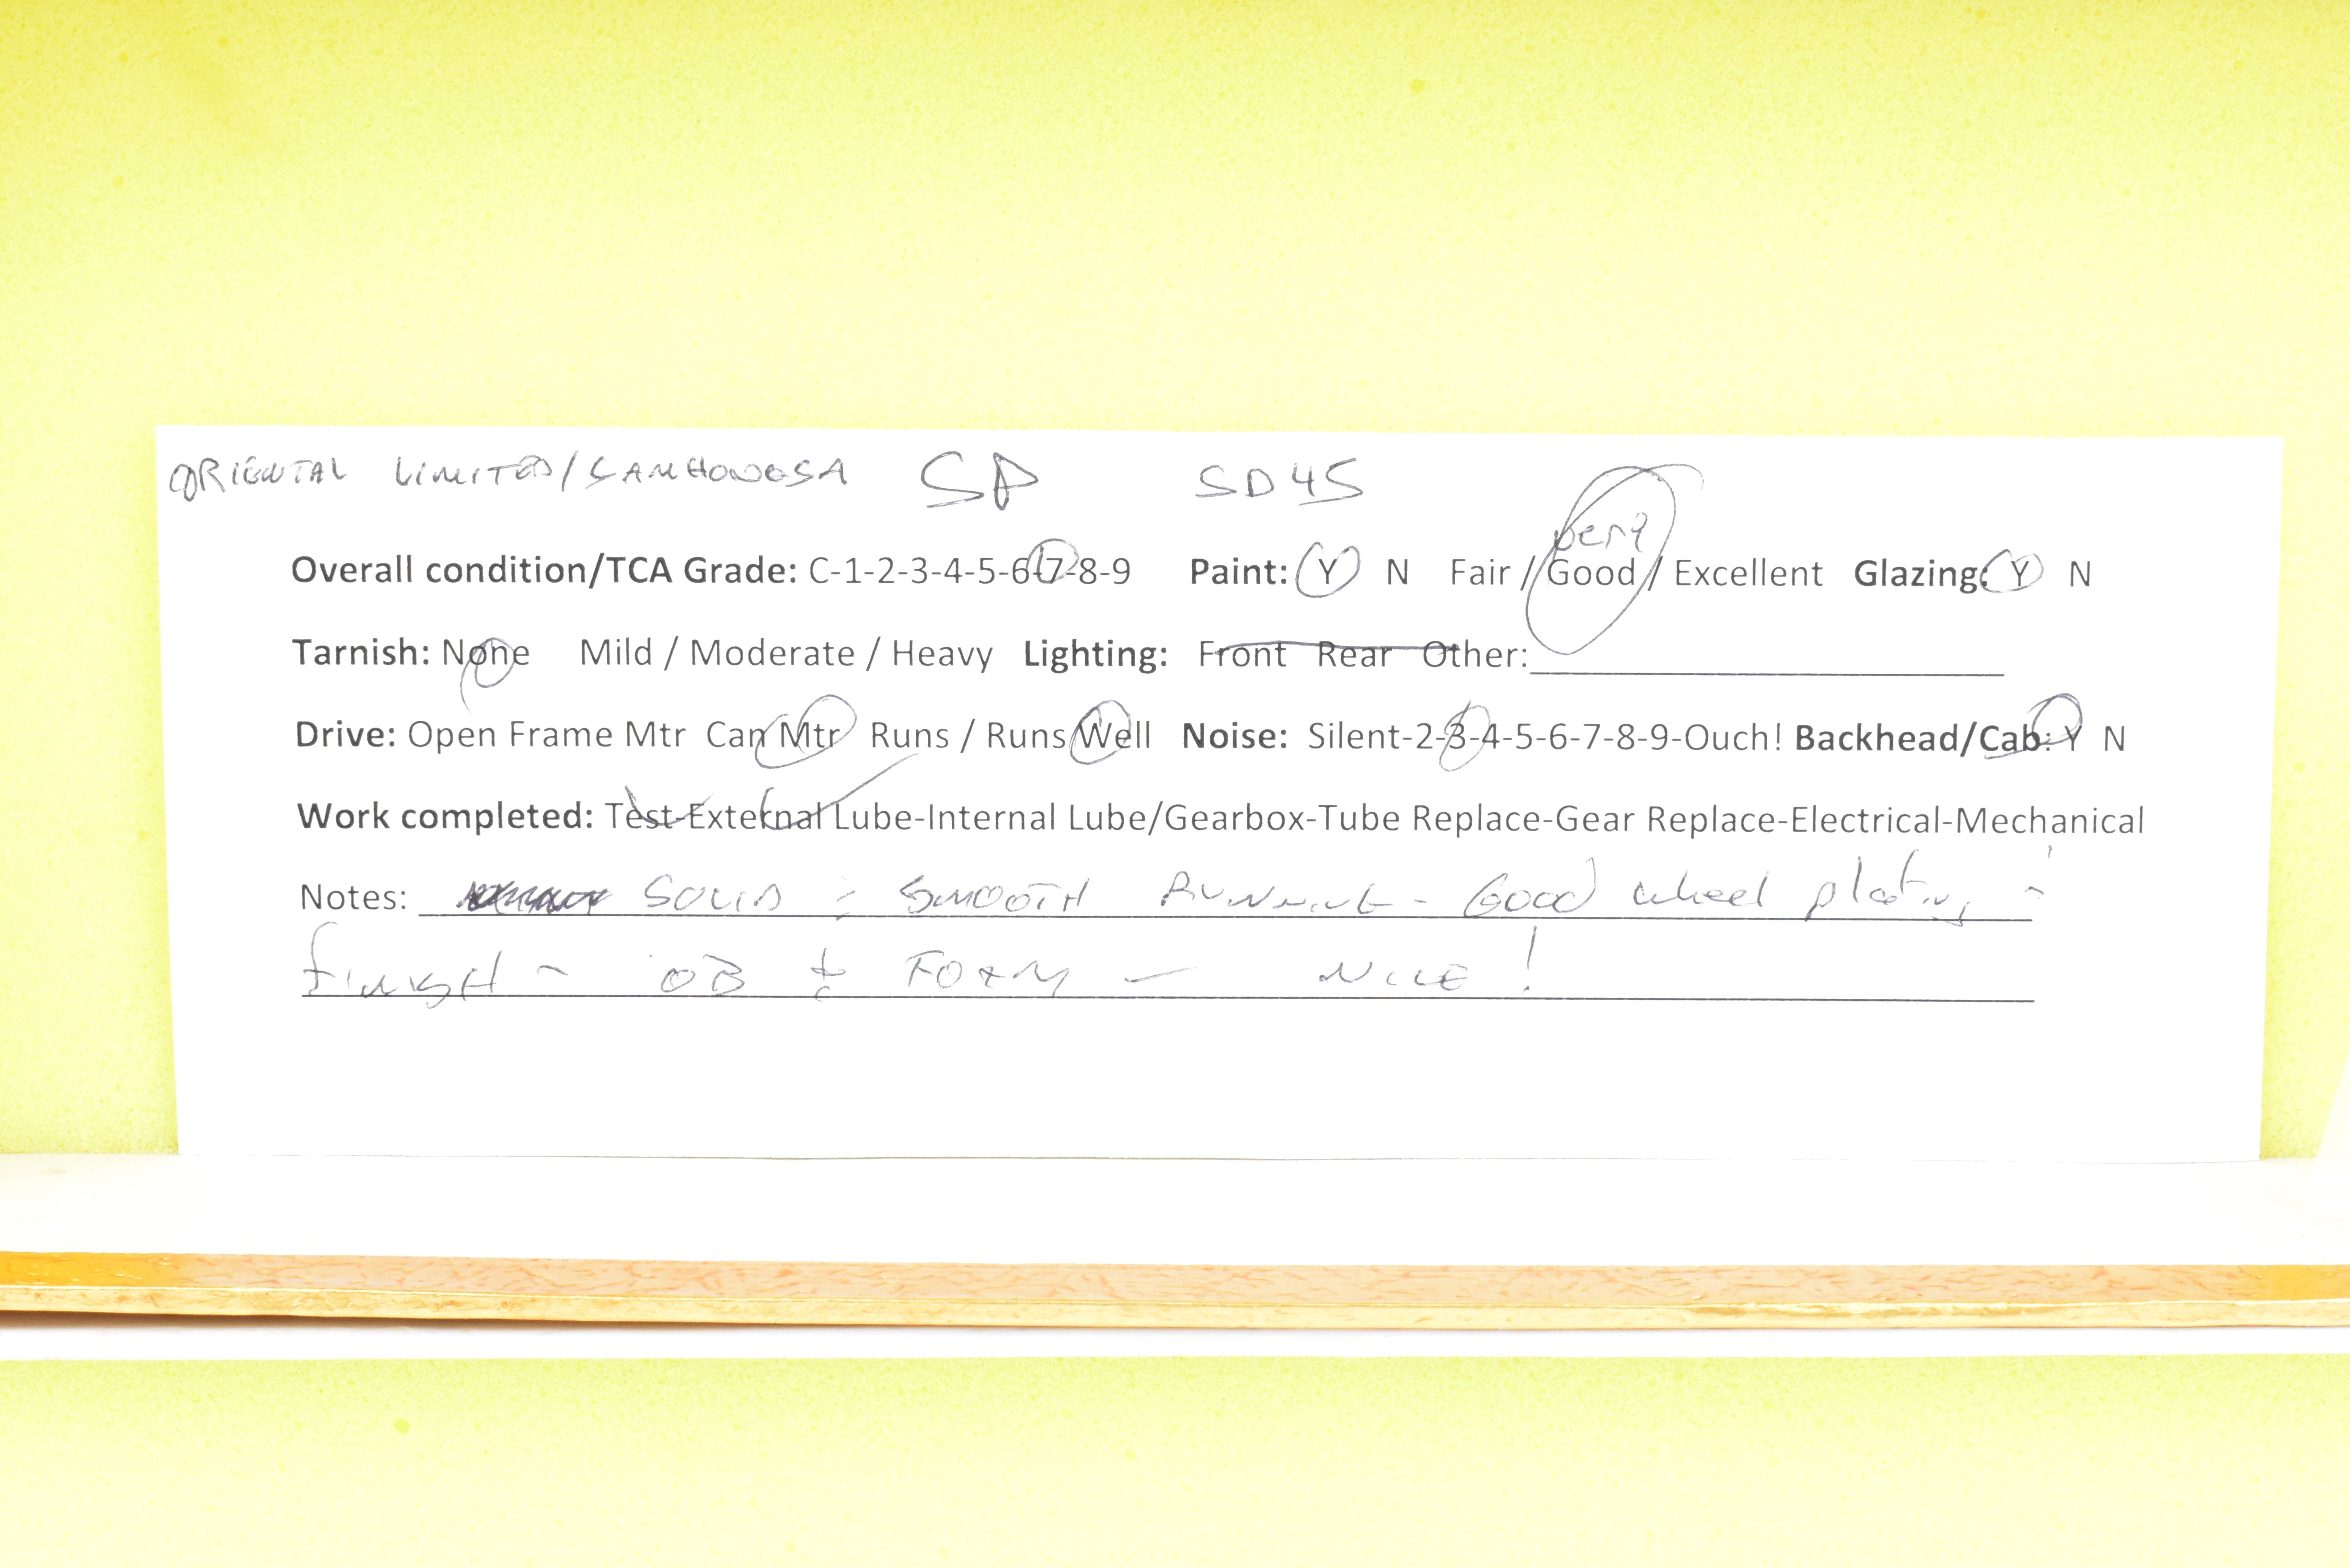 ORIENTAL LIMITED/SAMHONGSA SP SD45
Overall condition/TCA Grade: C-1-2-3-4-5-6-7-8-9 Paint: Y N Fair / very Good / Excellent Glazing: Y N
Tarnish: None Mild / Moderate / Heavy Lighting: Front Rear Other:
Drive: Open Frame Mtr Can Mtr Runs / Runs Well Noise: Silent-2-3-4-5-6-7-8-9-Ouch! Backhead/Cab: Y N
Work completed: Test-External Lube-Internal Lube/Gearbox-Tube Replace-Gear Replace-Electrical-Mechanical
Notes: SOLID : SMOOTH RUNNING - Good wheel plating -
FINISH - OB & FOAM - NICE!